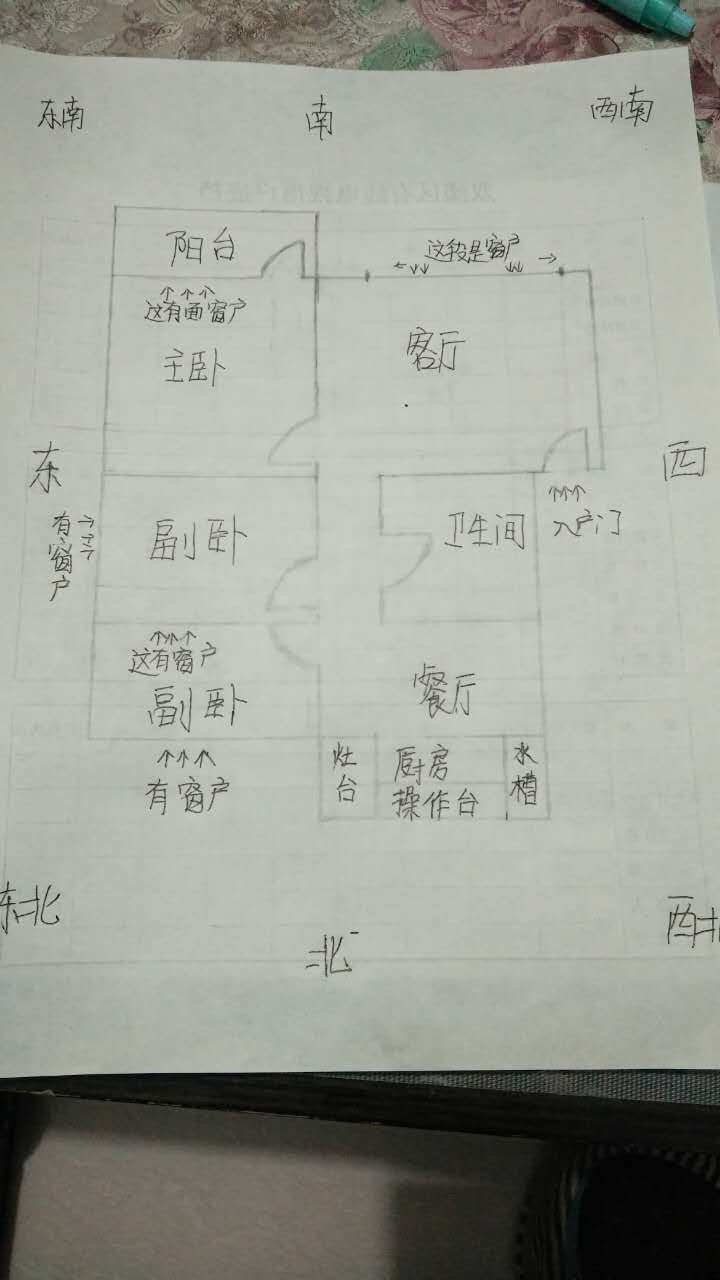 东南
南
西南
阳台
这段是窗户
这有面窗户
主卧
客厅
东
西
有窗户
副卧
卫生间
入户门
这有窗户
副卧
餐厅
有窗户
灶台
厨房
操作台
水槽
东北
北
西北